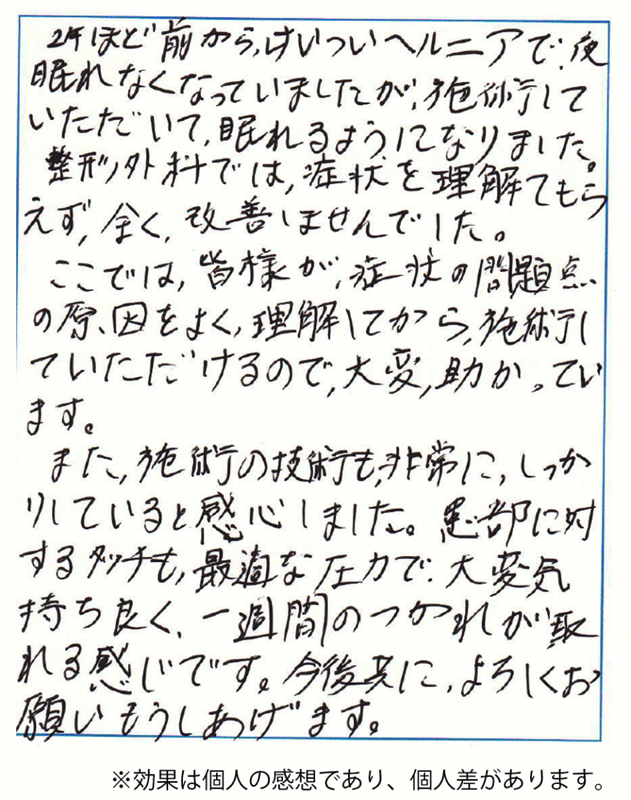 2年ほど前から、けいついヘルニアで、夜
眠れなくなっていましたが、施術して
いただいて、眠れるようになりました。
整形外科では、症状を理解してもら
えず、全く、改善しませんでした。
ここでは、皆様が、症状の問題点
の原因をよく、理解してから、施術し
ていただけるので、大変、助かってい
ます。
また、施術の技術も、非常に、しっか
りしていると感心しました。患部に対
するタッチも、最適な圧力で、大変気
持ち良く、一週間のつかれが取
れる感じです。今後共に、よろしくお
願いもうしあげます。
※効果は個人の感想であり、個人差があります。